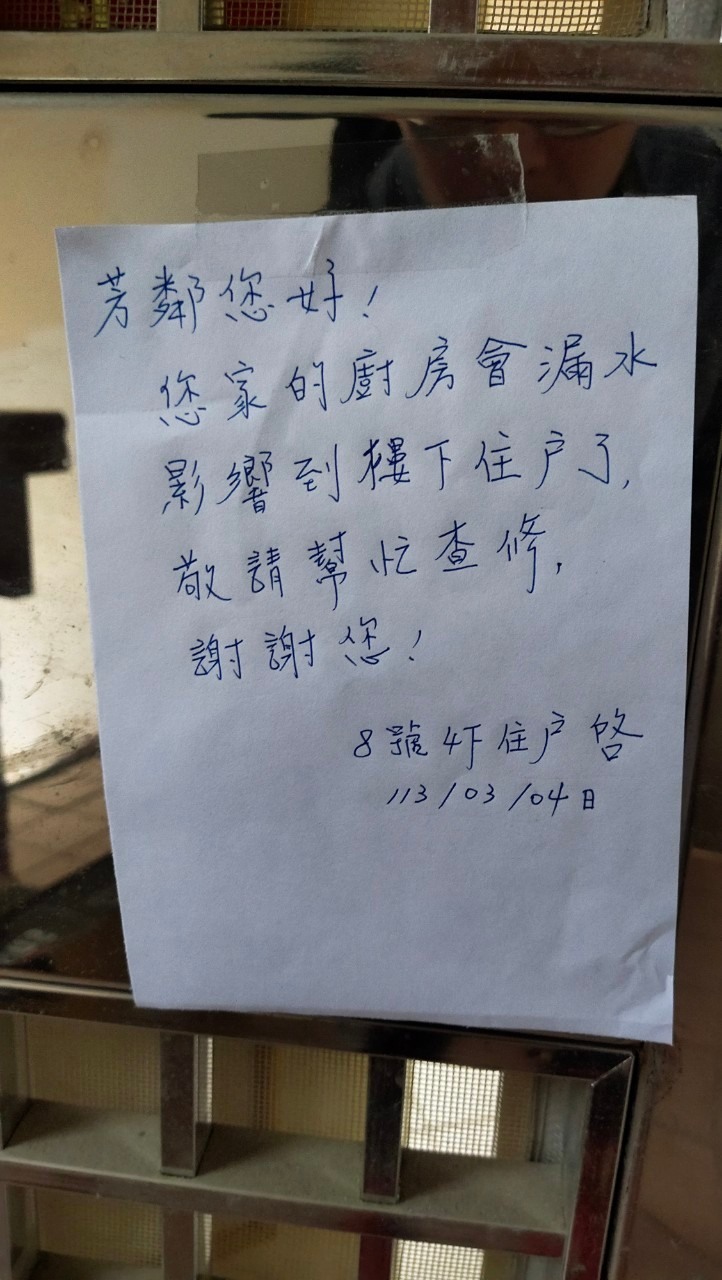 芳鄰您好!
您家的廚房會漏水
影響到樓下住戶了,
敬請幫忙查修,
謝謝您!
8號4F住戶 啓
113/03/04日